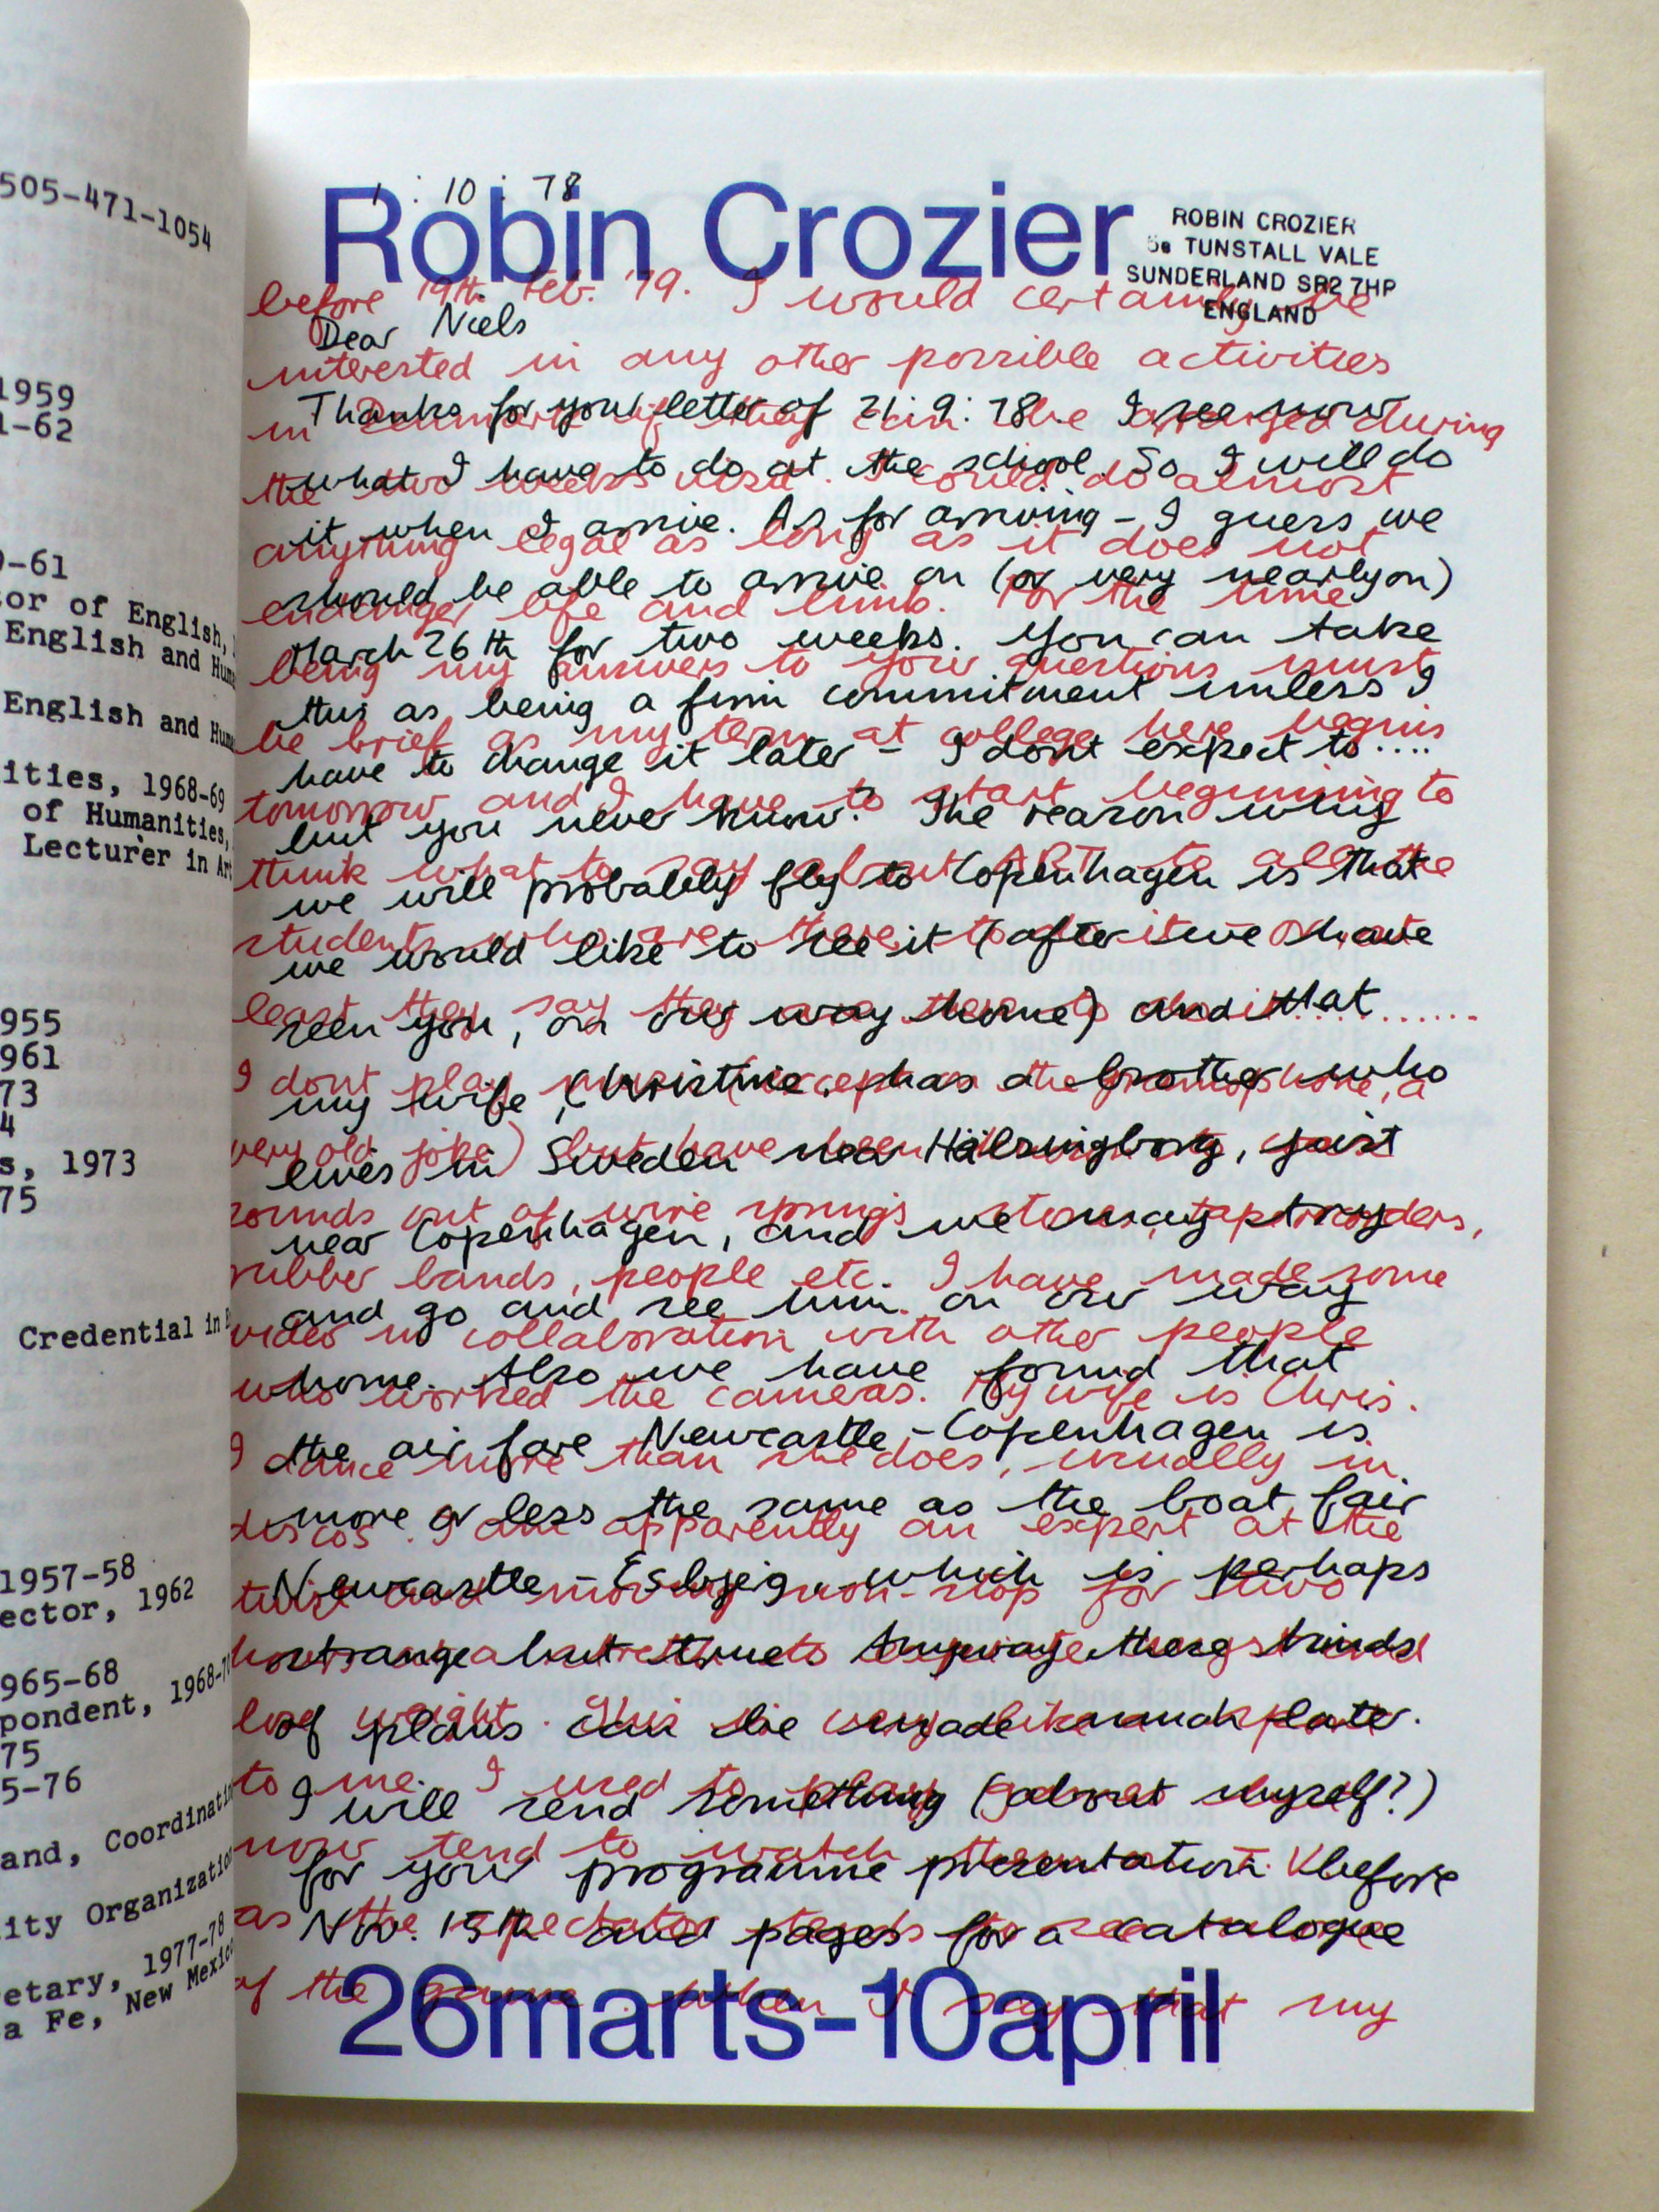 505-471-1054
1959
1-62
9-61
tor of English,
English and Hum
English and Hum
ities, 1968-69
of Humanities,
Lecturer in Art
955
961
73
4
s, 1973
75
Credential in E
1957-58
ector, 1962
965-68
pondent, 1968-7
75
5-76
and, Coordinatin
ity Organization
etary, 1977-78
a Fe, New Mexico
1:10:78
Robin Crozier
ROBIN CROZIER
5a TUNSTALL VALE
SUNDERLAND SR2 7HP
ENGLAND
Dear Niels
Thanks for your letter of 21:9:78. I see now
what I have to do at the school. So I will do
it when I arrive. As for arriving - I guess we
should be able to arrive on (or very nearly on)
March 26th for two weeks. You can take
this as being a firm commitment unless I
have to change it later - I dont expect to....
but you never know. The reason why
we will probably fly to Copenhagen is that
we would like to see it (after we have
seen you, on our way home) and that
my wife, Christine, has a brother who
lives in Sweden near Hälsingborg, just
near Copenhagen, and we may try
and go and see him on our way
home. Also we have found that
the air fare Newcastle - Copenhagen is
more or less the same as the boat fair
Newcastle - Esbjerg which is perhaps
strange but true. Anyway these kinds
of plans can be made much later.
I will send something (about myself?)
for your programme presentation before
Nov. 15th and pages for a catalogue
before 19th Feb. '79. I would certainly be
interested in any other possible activities
in Denmark if they can be arranged during
the two weeks visit. I could do almost
anything legal as long as it does not
endanger life and limb. For the time
being my answers to your questions must
be brief as my term at college here begins
tomorrow and I have to start beginning to
think what to say about ART to all the
students who are there to do it - or at
least they say they are there to do it..........
I dont play music (except on the gramophone, a
very old joke) but have been known to make
sounds out of wire springs, stones, tape recorders,
rubber bands, people etc. I have made some
video in collaboration with other people
who worked the cameras. My wife is Chris.
I dance more than she does, usually in
discos. I am apparently an expert at the
twist and moving non-stop for two
hours
lose weight. This
to me. I used to play
now tend to watch them
as the spectator
of the game. When I say that my
26marts-10april